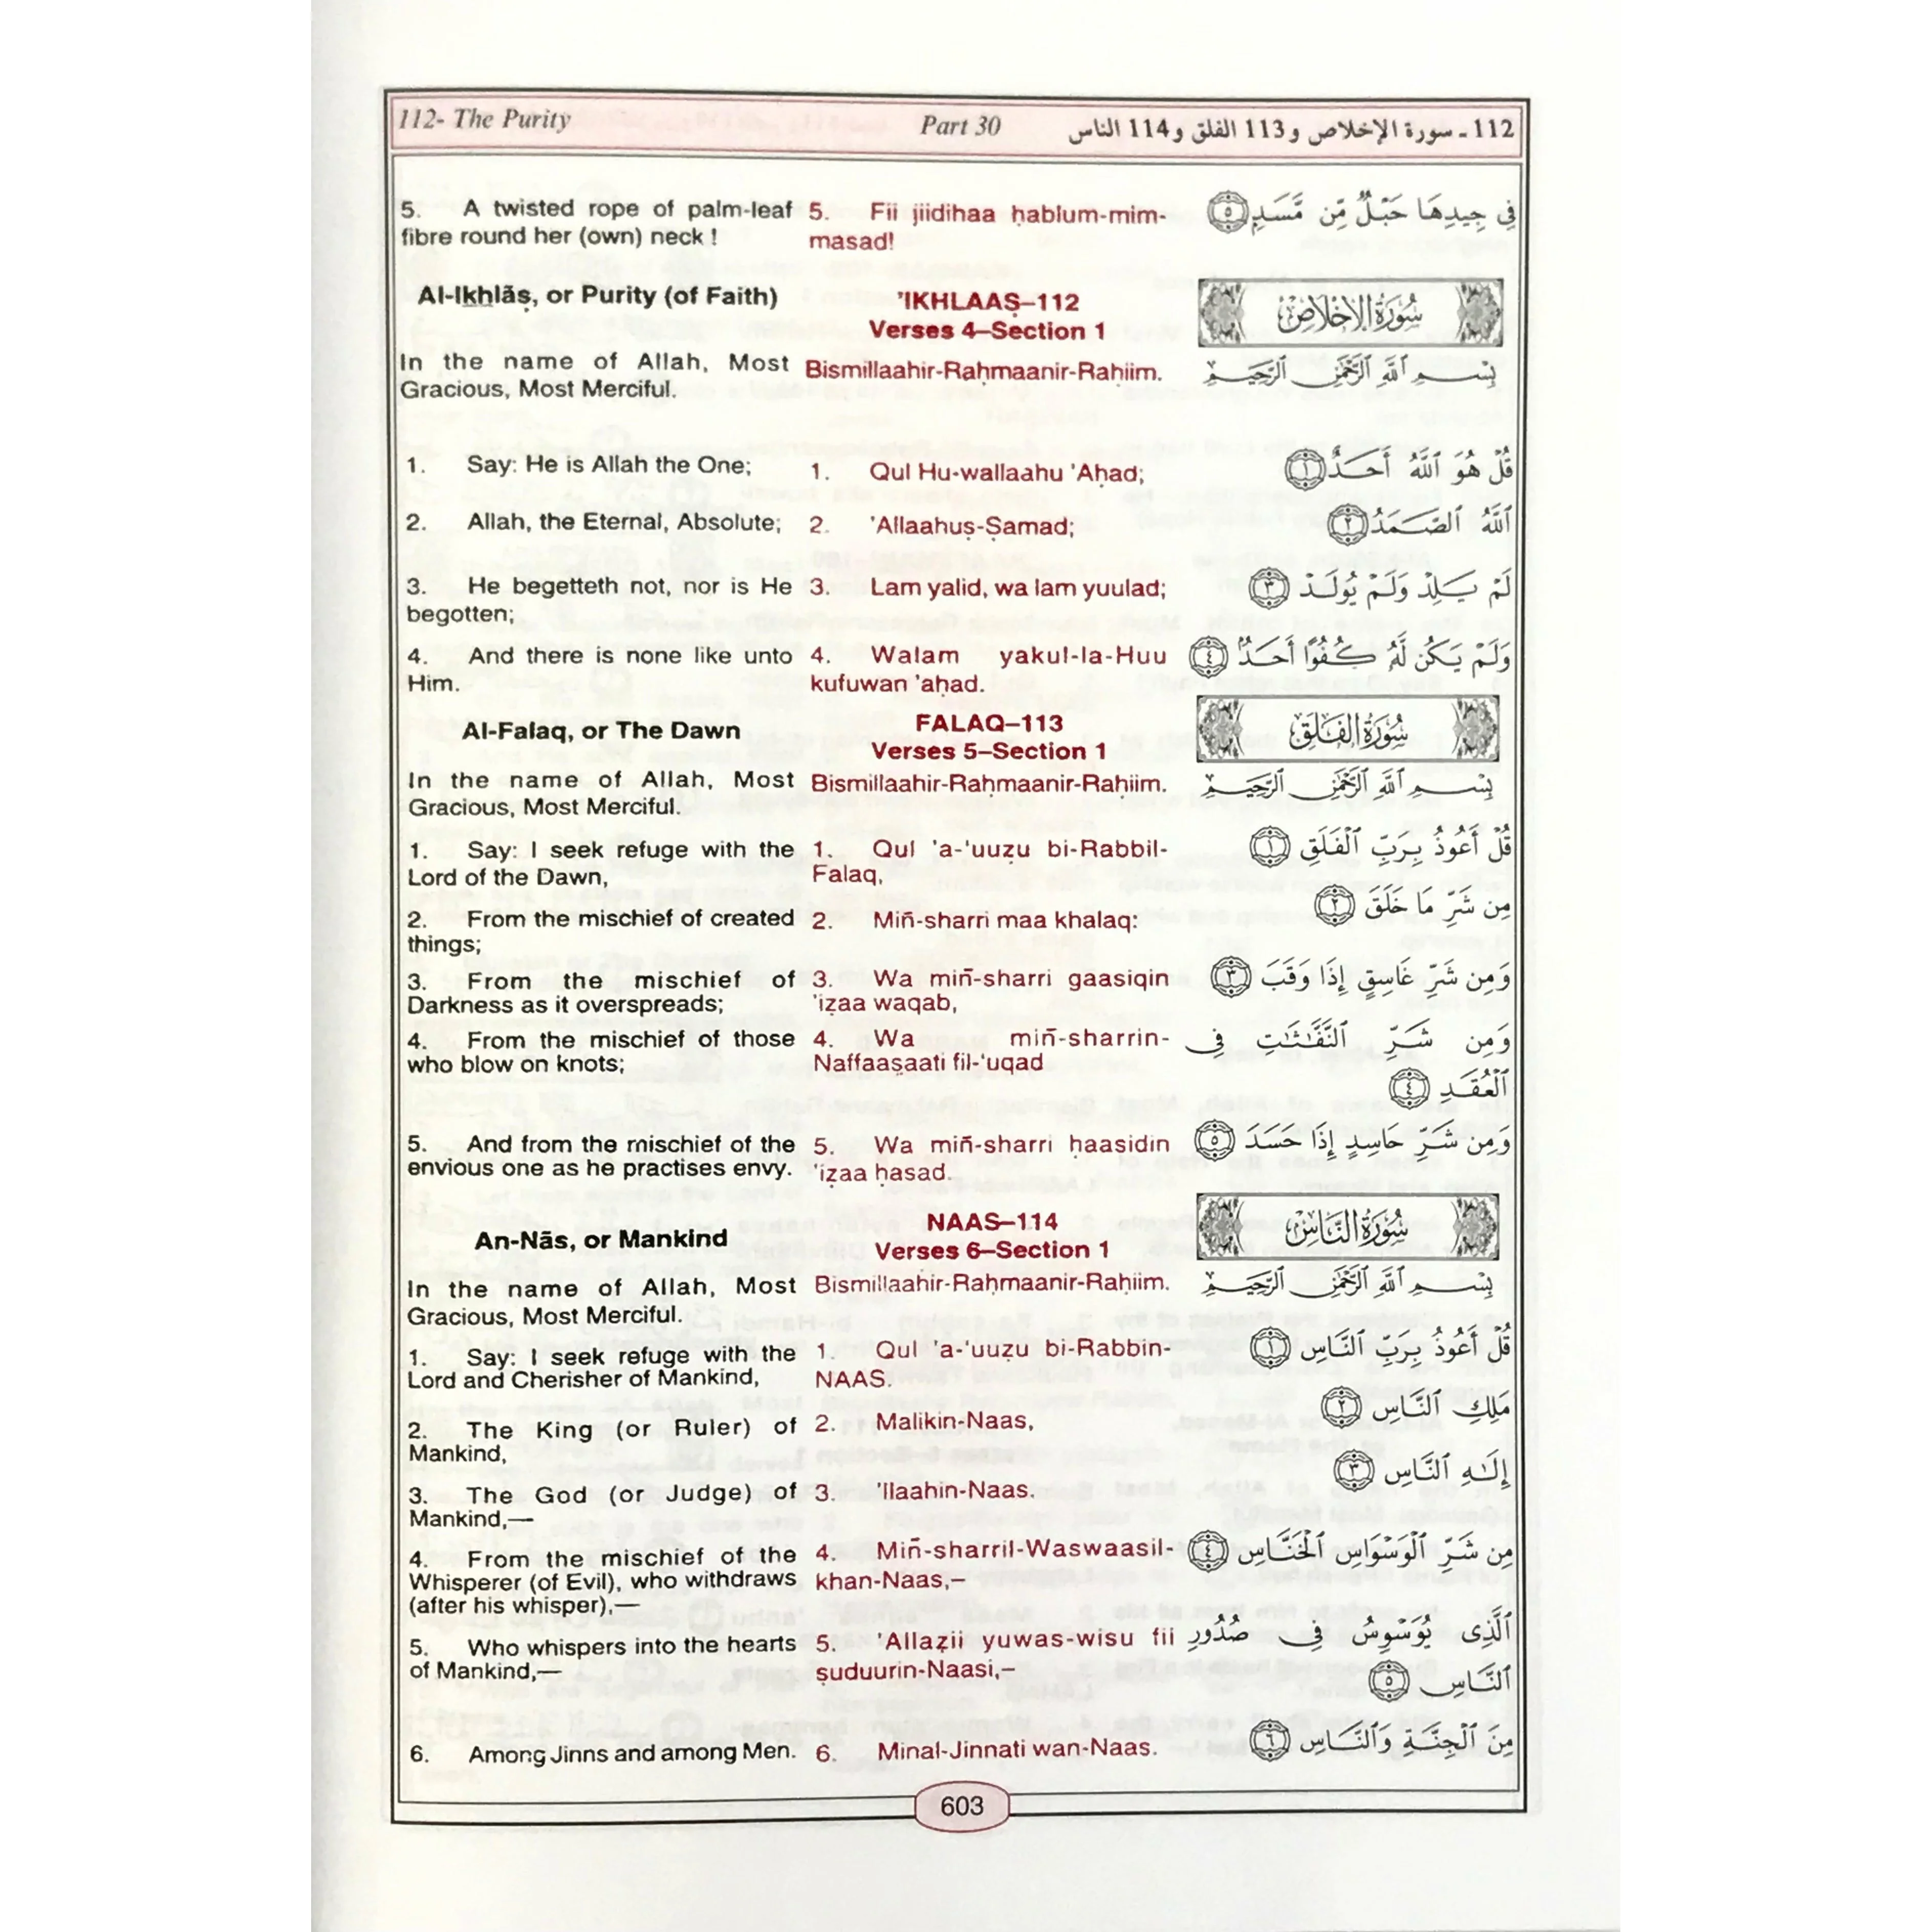 112- The Purity
Part 30
112 ـ سورة الإخلاص و 113 الفلق و 114 الناس
5. A twisted rope of palm-leaf
fibre round her (own) neck !
5. Fii jiidihaa ḥablum-mim-
masad!
فِى جِيدِهَا حَبْلٌ مِّن مَّسَدٍۭ ٥
Al-Ikhlāṣ, or Purity (of Faith)
'IKHLAAṢ–112
Verses 4–Section 1
سُورَةُ الإِخْلَاصِ
In the name of Allah, Most
Gracious, Most Merciful.
Bismillaahir-Raḥmaanir-Raḥiim.
بِسْمِ ٱللَّهِ ٱلرَّحْمَٰنِ ٱلرَّحِيمِ
1. Say: He is Allah the One;
1. Qul Hu-wallaahu 'Aḥad;
قُلْ هُوَ ٱللَّهُ أَحَدٌ ١
2. Allah, the Eternal, Absolute;
2. 'Allaahuṣ-Ṣamad;
ٱللَّهُ ٱلصَّمَدُ ٢
3. He begetteth not, nor is He
begotten;
3. Lam yalid, wa lam yuulad;
لَمْ يَلِدْ وَلَمْ يُولَدْ ٣
4. And there is none like unto
Him.
4. Walam yakul-la-Huu
kufuwan 'aḥad.
وَلَمْ يَكُن لَّهُۥ كُفُوًا أَحَدٌۢ ٤
Al-Falaq, or The Dawn
FALAQ–113
Verses 5–Section 1
سُورَةُ الْفَلَقِ
In the name of Allah, Most
Gracious, Most Merciful.
Bismillaahir-Raḥmaanir-Raḥiim.
بِسْمِ ٱللَّهِ ٱلرَّحْمَٰنِ ٱلرَّحِيمِ
1. Say: I seek refuge with the
Lord of the Dawn,
1. Qul 'a-'uuẓu bi-Rabbil-
Falaq,
قُلْ أَعُوذُ بِرَبِّ ٱلْفَلَقِ ١
2. From the mischief of created
things;
2. Miñ-sharri maa khalaq:
مِن شَرِّ مَا خَلَقَ ٢
3. From the mischief of
Darkness as it overspreads;
3. Wa miñ-sharri gaasiqin
'iẓaa waqab,
وَمِن شَرِّ غَاسِقٍ إِذَا وَقَبَ ٣
4. From the mischief of those
who blow on knots;
4. Wa miñ-sharrin-
Naffaaṣaati fil-'uqad
وَمِن شَرِّ ٱلنَّفَّٰثَٰتِ فِى
ٱلْعُقَدِ ٤
5. And from the mischief of the
envious one as he practises envy.
5. Wa miñ-sharri ḥaasidin
'iẓaa ḥasad.
وَمِن شَرِّ حَاسِدٍ إِذَا حَسَدَ ٥
An-Nās, or Mankind
NAAS–114
Verses 6–Section 1
سُورَةُ النَّاسِ
In the name of Allah, Most
Gracious, Most Merciful.
Bismillaahir-Raḥmaanir-Raḥiim.
بِسْمِ ٱللَّهِ ٱلرَّحْمَٰنِ ٱلرَّحِيمِ
1. Say: I seek refuge with the
Lord and Cherisher of Mankind,
1. Qul 'a-'uuẓu bi-Rabbin-
NAAS.
قُلْ أَعُوذُ بِرَبِّ ٱلنَّاسِ ١
2. The King (or Ruler) of
Mankind,
2. Malikin-Naas,
مَلِكِ ٱلنَّاسِ ٢
3. The God (or Judge) of
Mankind,—
3. 'Ilaahin-Naas.
إِلَٰهِ ٱلنَّاسِ ٣
4. From the mischief of the
Whisperer (of Evil), who withdraws
(after his whisper),—
4. Miñ-sharril-Waswaasil-
khan-Naas,–
مِن شَرِّ ٱلْوَسْوَاسِ ٱلْخَنَّاسِ ٤
5. Who whispers into the hearts
of Mankind,—
5. 'Allaẓii yuwas-wisu fii
ṣuduurin-Naasi,–
ٱلَّذِى يُوَسْوِسُ فِى صُدُورِ
ٱلنَّاسِ ٥
6. Among Jinns and among Men.
6. Minal-Jinnati wan-Naas.
مِنَ ٱلْجِنَّةِ وَٱلنَّاسِ ٦
603